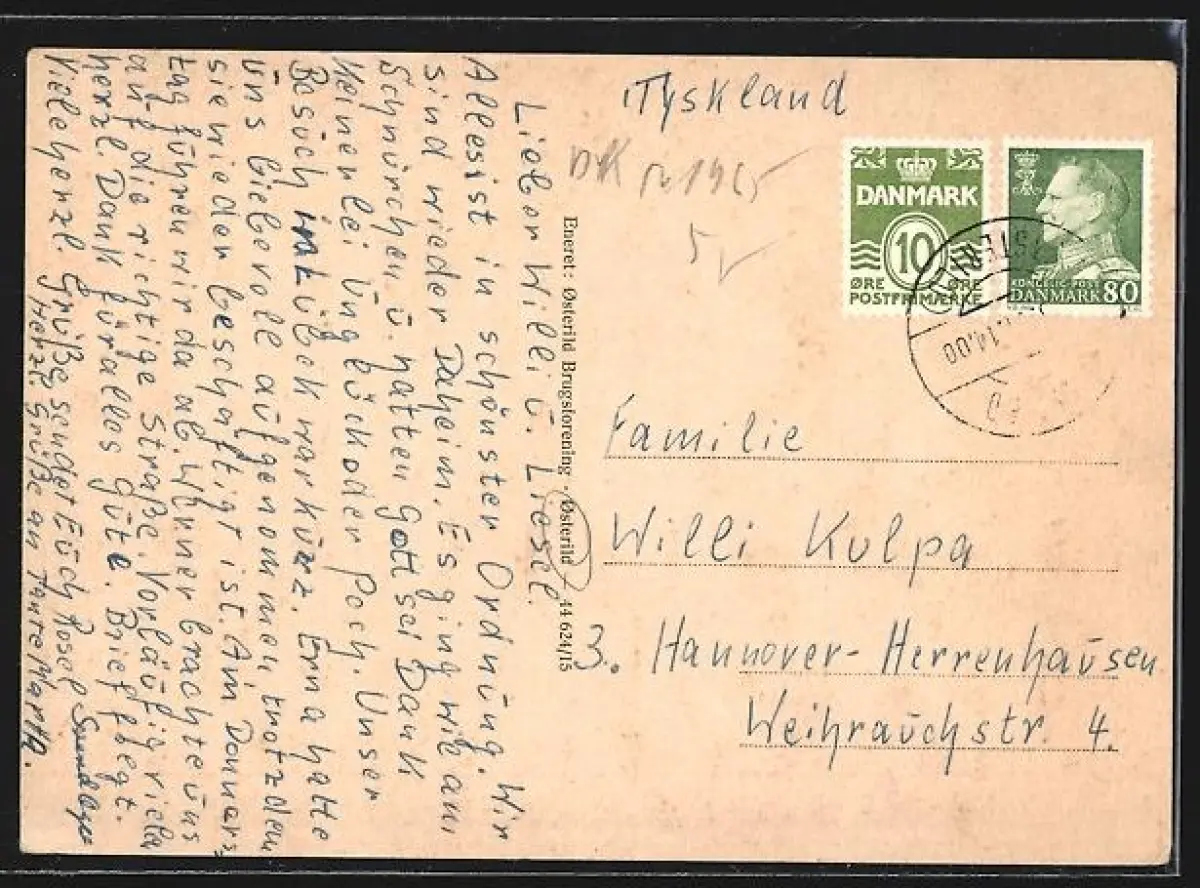 Tyskland
DK 1965
5
DANMARK
10
ØRE ØRE
POSTFRIMÆRKE
KONGELIG POST
DANMARK 80
14.00
Lieber Willi ü. Liesel.
Allesist in schönster Ordnüng. Wir
sind wieder Daheim. Es ging wie am
Schnürchen ü. hatten Gott sei Dank
Keinerlei Unglück oder Poch. Unser
Besüch in Lübeck war kürz. Erna hatte
Uns Liebevoll aüfgenommen trotzdem
sie wieder beschäftigt ist. Am Donners-
tag führen wir da ab. Werner brachte üns
aüf die richtige Straße. Vorläüfig vielen
herzl. Dank für alles Güte. Brief folgt.
Viele herzl. Grüße sendet Eüch Rosel
Herzl. Grüße an Tante Martha.
Eneret: Østerild Brugsforening - Østerild 44 624/15
Familie
Willi Kulpa
3. Hannover-Herrenhaüsen
Weihraüchstr. 4.